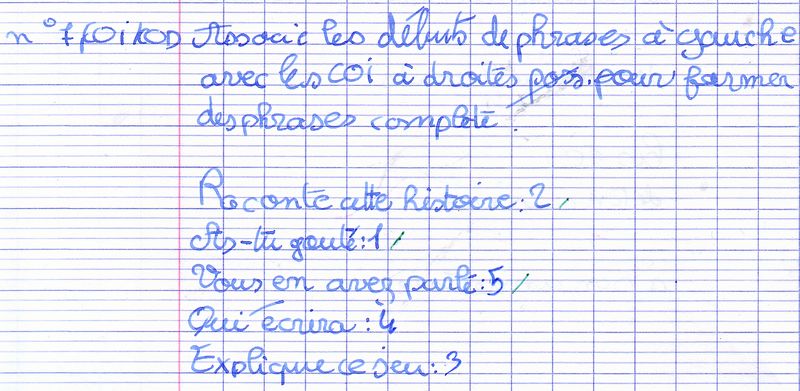 n°7 Associe les débuts de phrases à gauche
avec les COI à droites pour former
des phrases complète.
Raconte cette histoire : 2
As-tu gouté : 1
Vous en avez parlé : 5
Qui écrira : 4
Explique ce jeu : 3